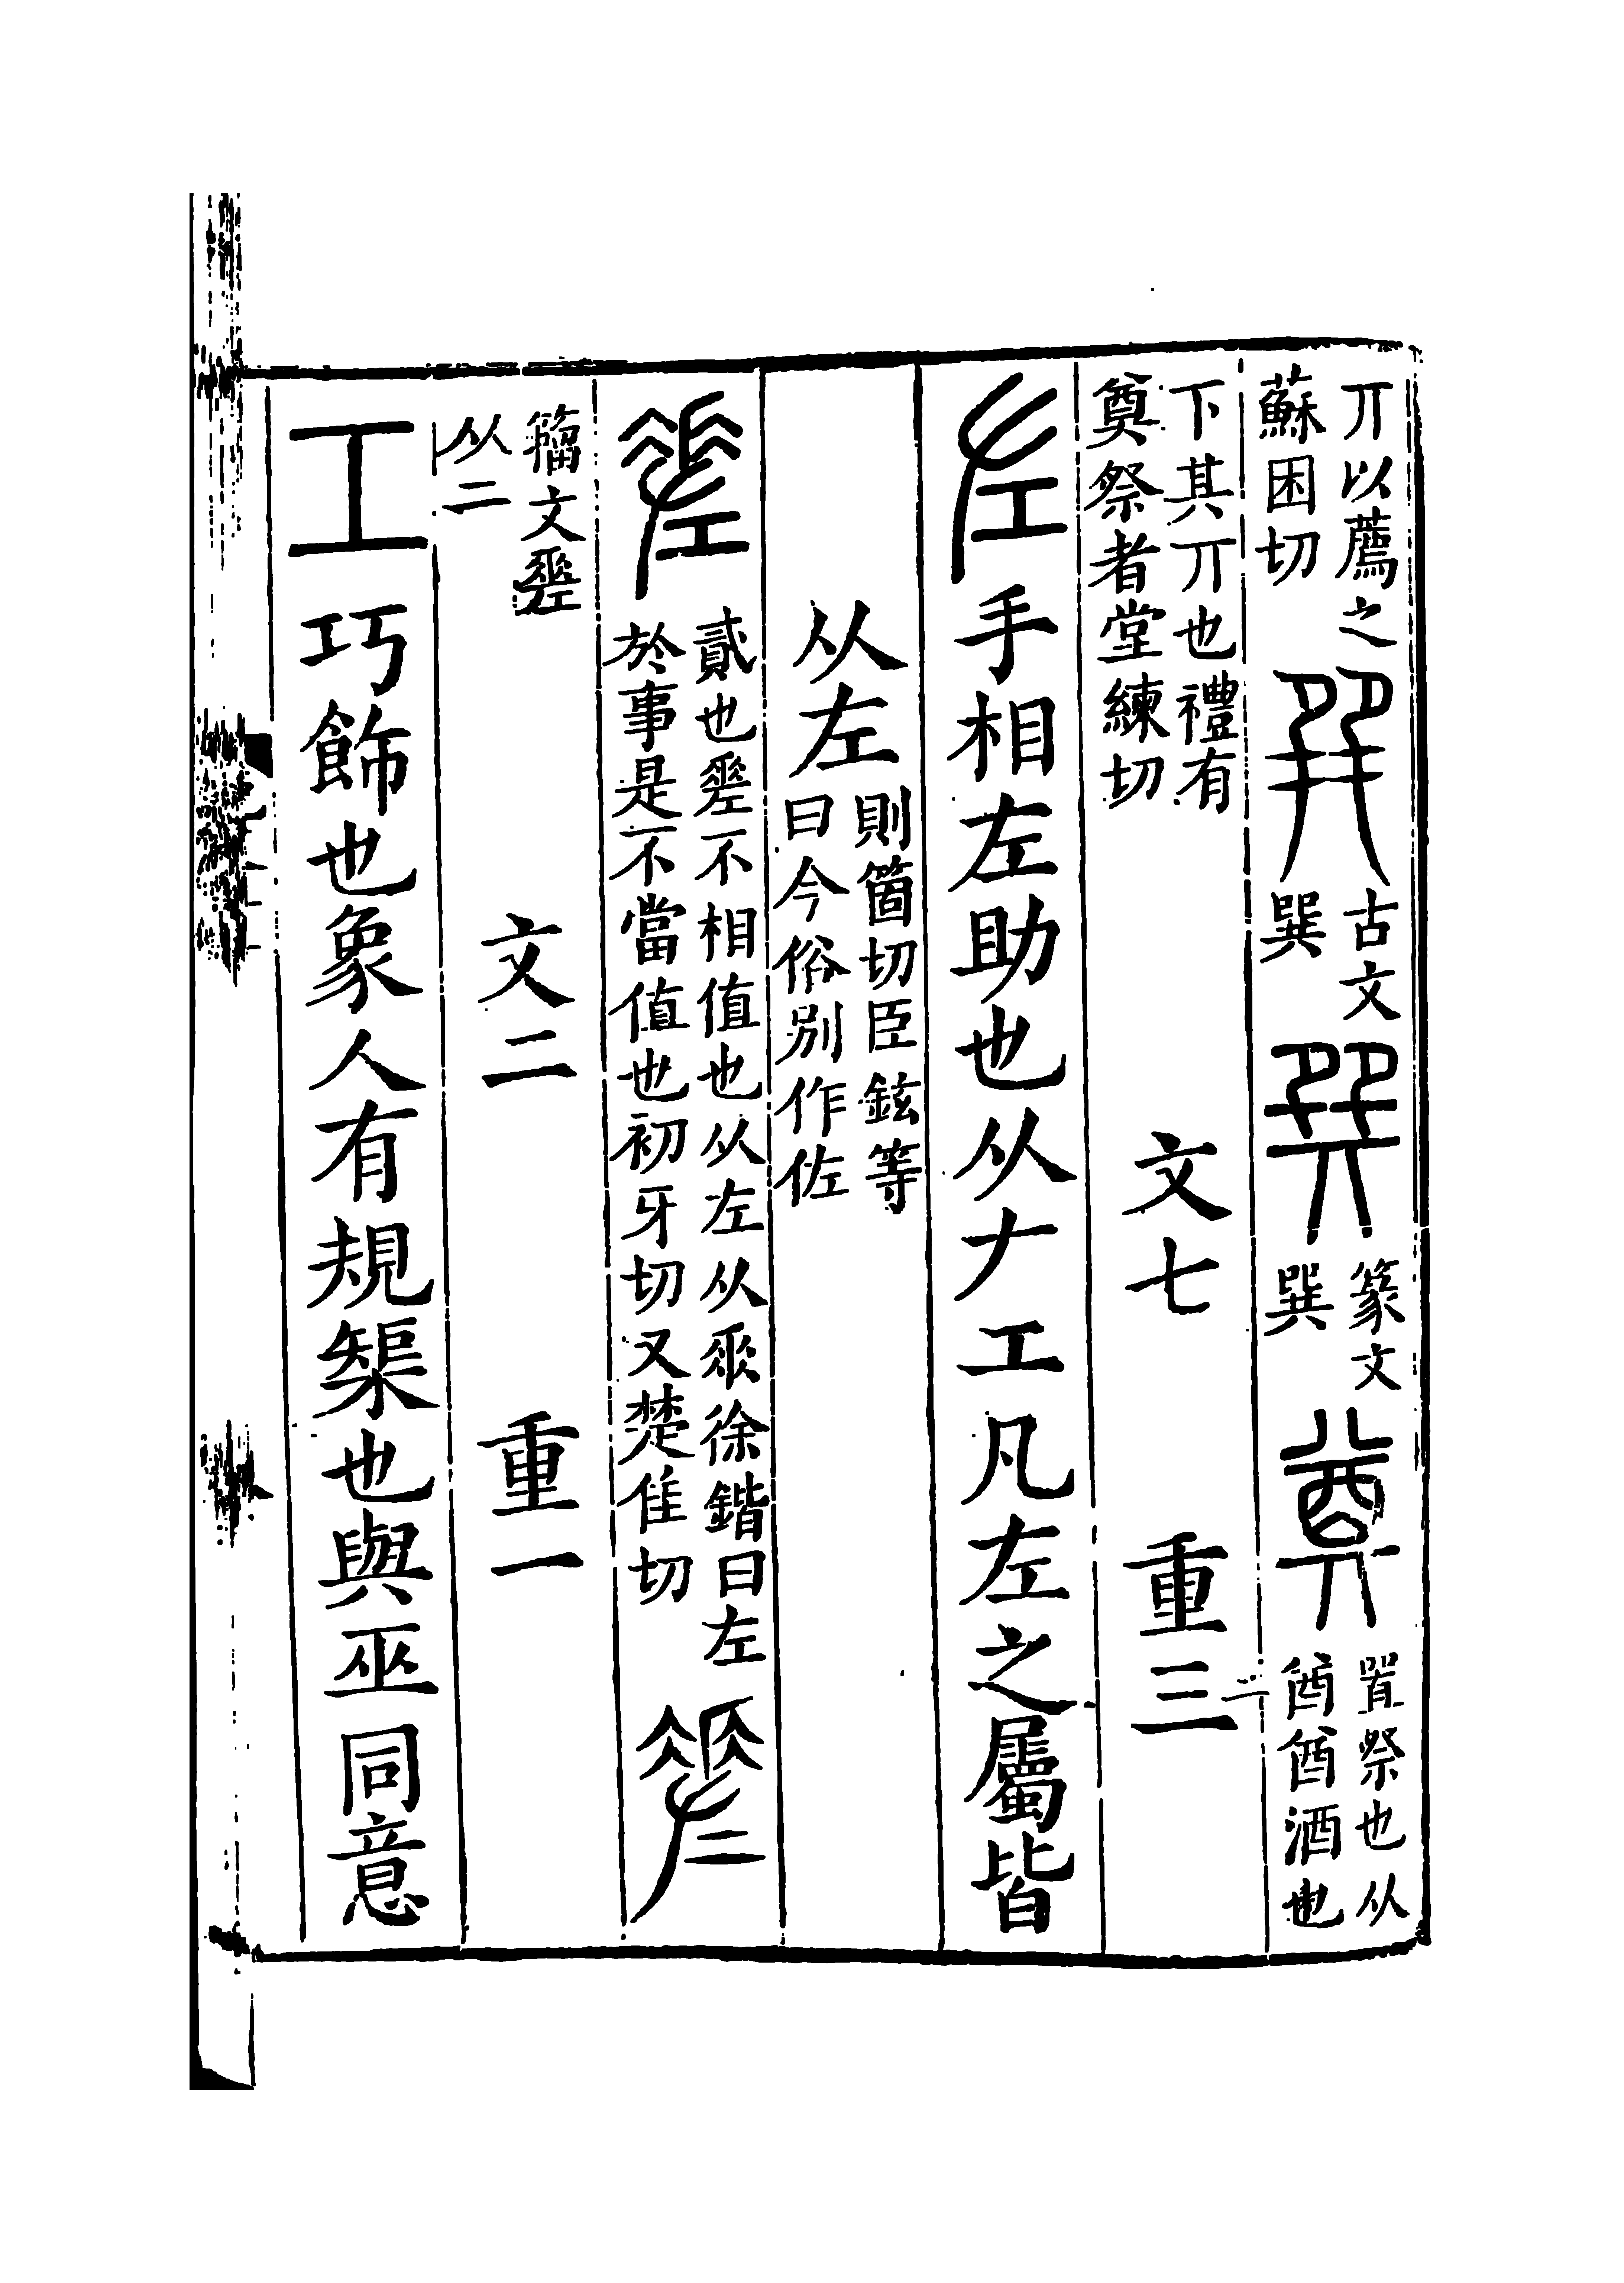 丌以薦之蘇困切𢁅古文巽𢁉篆文巽奠置祭也从酋酋酒也
下其丌也禮有奠祭者堂練切 文七 重三
左手相左助也从𠂇工凡左之屬皆
从左則箇切臣鉉等曰今俗別作佐
𢀩貳也𢀩不相值也从左从𠂹徐鍇曰左於事是不當值也初牙切又楚隹切
籀文𢀩从二 文二 重一
工巧飾也象人有規榘也與巫同意